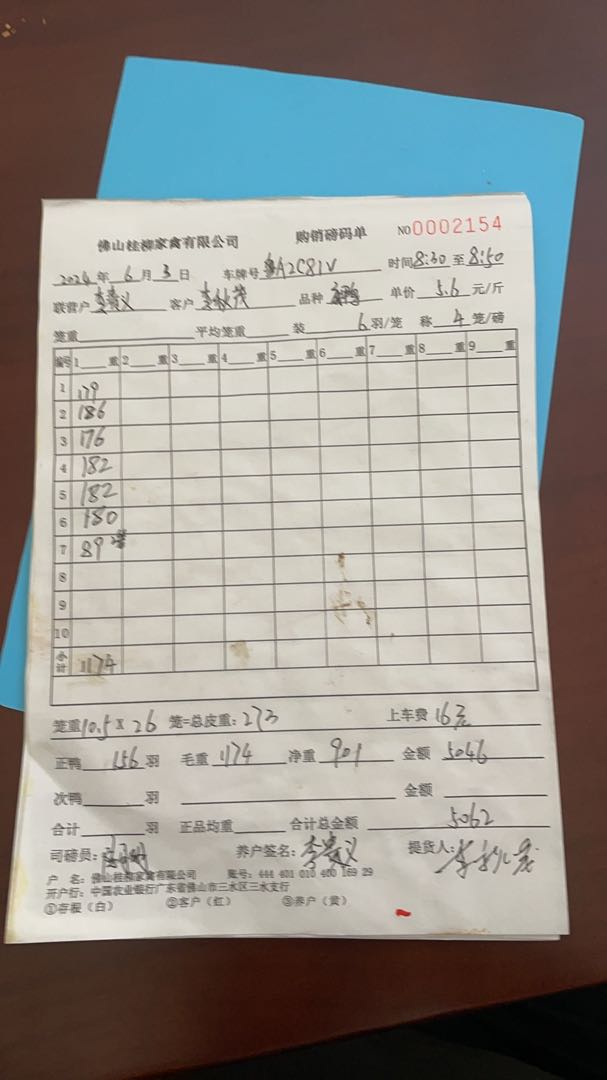 佛山桂柳家禽有限公司 购销磅码单 NO 0002154
2024 年 6 月 3 日 车牌号 鲁A2C81V 时间 8:30 至 8:50
联营户 李 义 客户 李秋茂 品种 单价 5.6 元/斤
笼重 平均笼重 装 6 羽/笼 称 4 笼/磅
编号 1 重 2 重 3 重 4 重 5 重 6 重 7 重 8 重 9 重
1 179
2 186
3 176
4 182
5 182
6 180
7 89 2笼
8
9
10
合计 1174
笼重 10.5 X 26 笼=总皮重: 273 上车费 16元
正鸭 156 羽 毛重 1174 净重 901 金额 5046
次鸭 羽 金额
合计 羽 正品均重 合计总金额 5062
司磅员: 养户签名: 李 义 提货人: 李秋茂
户 名: 佛山桂柳家禽有限公司 账号: 444 401 010 400 169 29
开户行: 中国农业银行广东省佛山市三水区三水支行
①存根（白） ②客户（红） ③养户（黄）